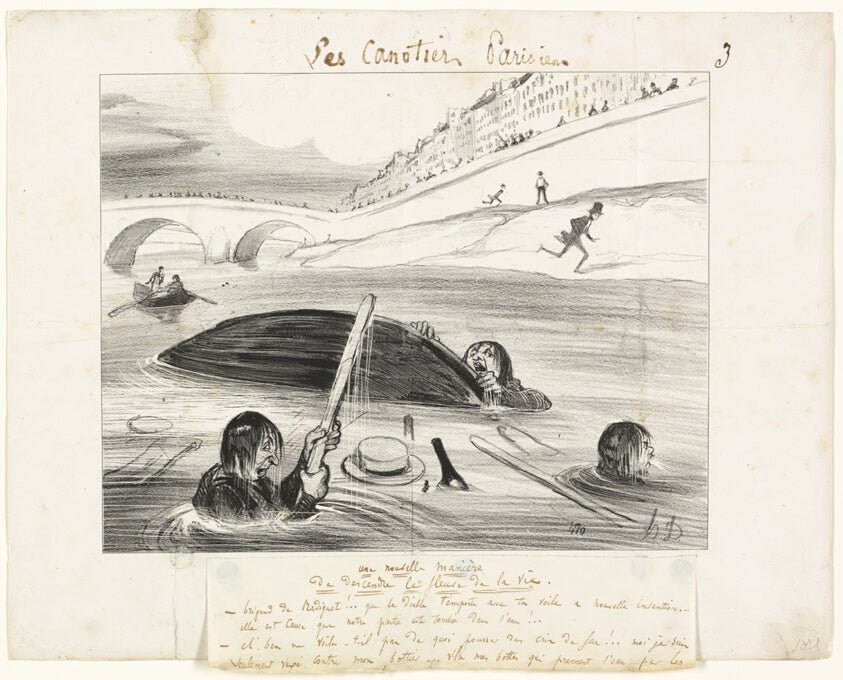 Les Canotier Parisien
3
470
h D
une nouvelle manière
De Descendre le fleuve De la Vie.
— brigand de Radiguet!.. que le Diable t'emporte avec ta voile a nouvelle invention...
elle est Cause que notre est tombé dans l'eau...
— eh ben ne voila-t-il pas de quoi pousser des cris de feu!.. moi je suis
seulement vexé contre mon bottier.. v'la mes bottes qui prennent l'eau par les